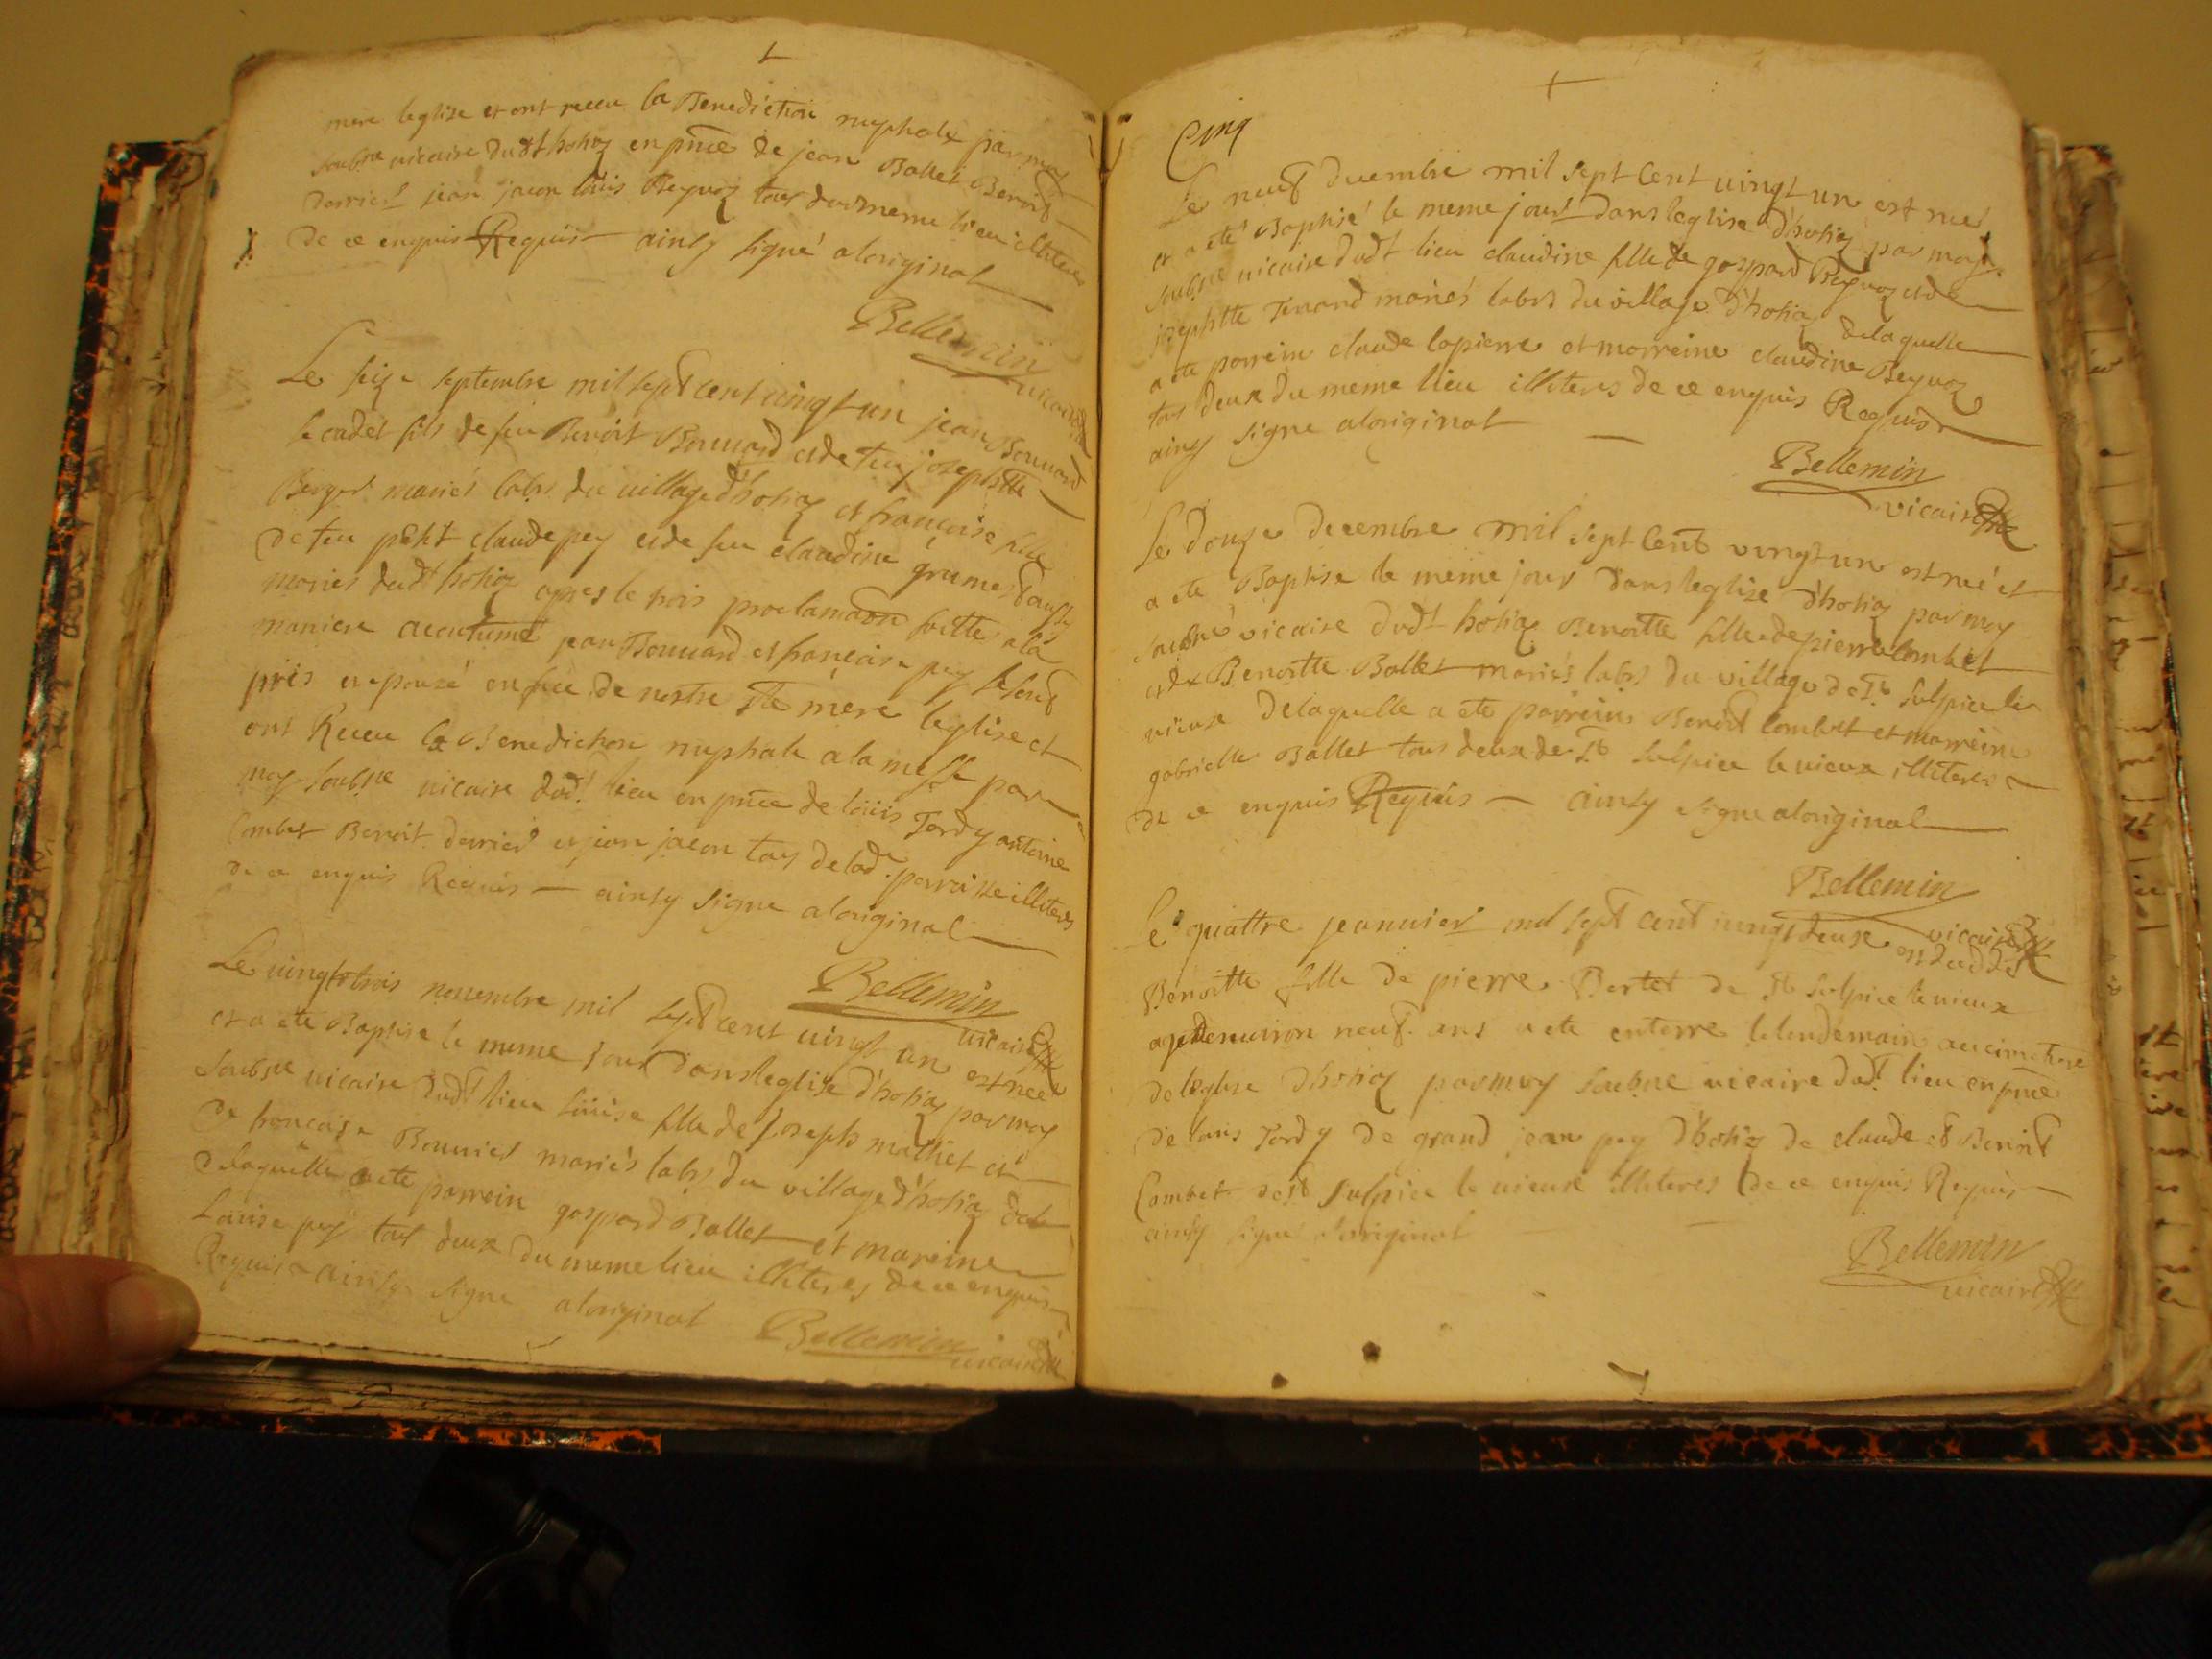 mere leglise et ont receu la Benediction nuptiale par moy
soubne vicaire dudt hotiaz en pnce de jean Ballet Benoit
Derrier jean jacon loüis Reyvoz tous du meme lieu illiteres
de ce enquis Requis ainsy signé aloriginal
Bellemin
vicaire
Le seize septembre mil sept cent vingt un jean Bonnard
le cadet fils de feu Benoit Bonnard et de feu josephtte
Berger mariés labrs du village d'hotiaz et francoise fille
de feu petit claude pey et de feu claudine aussy
mariés dudt hotiaz apres le trois proclamaon faitte a la
maniere accutumé jean Bonnard et francoise pey se sont
pris en epousé en face de nostre ste mere leglise et
ont Receu la Benediction nuptiale a la messe par
moy soubne vicaire dudt lieu en pnce de loüis Tardy antoine
Combet Benoit derrier et jean jacon tous de lade parroisse illiteres
de ce enquis Requis ainsy signe aloriginal
Bellemin
vicaire
Le vingt trois novembre mil sept cent vingt un est nee
et a ete Baptise le meme jour dans leglise d'hotiaz par moy
soubne vicaire dudt lieu loüise fille de joseph mathet et
de francoise Bonnier mariés labrs du village d'hotiaz de
delaquelle a ete parrein gaspard Ballet et mareine
Loüise pey tous deux du meme lieu illiteres de ce enquis
Requis ainsy signe aloriginal
Bellemin
vicaire
Cinq
Le neuf decembre mil sept Cent vingt un est née
et a eté Baptisé le meme jour dans leglise d'hotiaz par moy
soubne vicaire dudt lieu claudine fille de gaspard Reyvoz et de
josephtte Tenand mariés labrs du village d'hotiaz delaquelle
a ete parrein claude lapierre et marreine claudine Reyvoz
tous deux du meme lieu illiteres de ce enquis Requis
ainsy signe aloriginal
Bellemin
vicaire
Le douze decembre mil sept Cent vingt un est né et
a ete Baptise le meme jour dans leglise d'hotiaz par moy
soubne vicaire dudt hotiaz Benoitte fille de pierre Combet
et de Benoitte Ballet mariés labrs du village de St Sulpice le
vieux delaquelle a ete parrein Benoit Combet et marreine
gabrielle Ballet tous deux de St Sulpice le vieux illiteres
de ce enquis Requis ainsy signe aloriginal
Bellemin
vicaire
Le quattre jeanvier mil sept cent vingt deux est decedée
Benoitte fille de pierre Bertet de St Sulpice le vieux
agée denviron neuf ans a ete enterre le lendemain au cimetiere
de leglise d'hotiaz par moy soubne vicaire dudt lieu en pnce
de loüis Tardy de grand jean pey d'hotiaz de claude et Benoit
Combet de St Sulpice le vieux illiteres de ce enquis Requis
ainsy signe aloriginal
Bellemin
vicaire